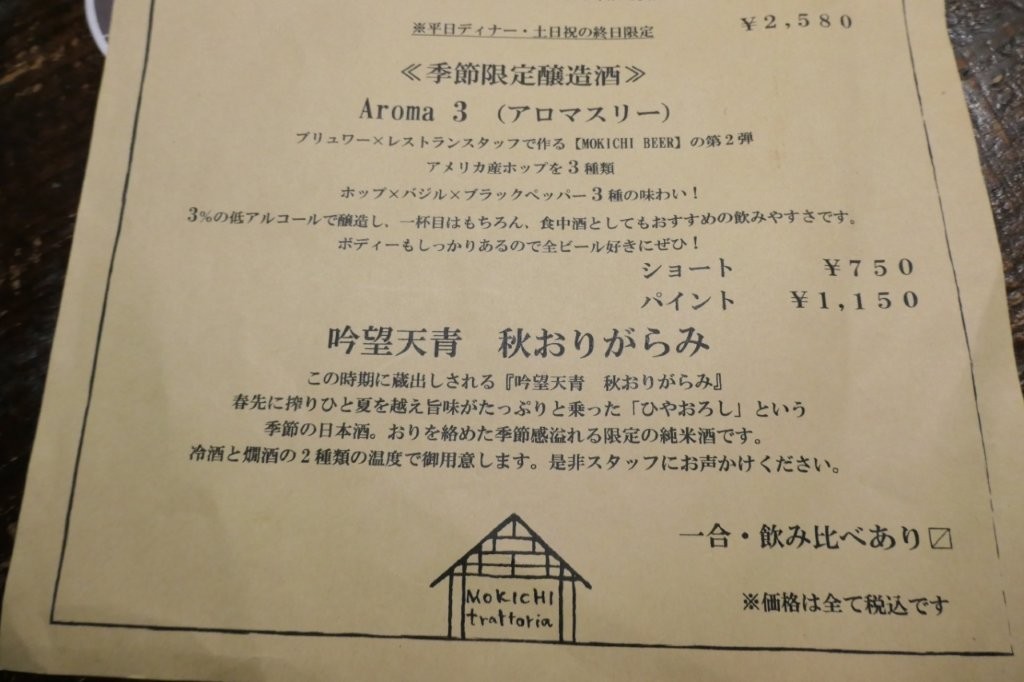 ¥2,580
※平日ディナー・土日祝の終日限定
≪季節限定醸造酒≫
Aroma 3 (アロマスリー)
ブリュワー×レストランスタッフで作る【MOKICHI BEER】の第2弾
アメリカ産ホップを3種類
ホップ×バジル×ブラックペッパー3種の味わい!
3%の低アルコールで醸造し、一杯目はもちろん、食中酒としてもおすすめの飲みやすさです。
ボディーもしっかりあるので全ビール好きにぜひ!
ショート ¥750
パイント ¥1,150
吟望天青 秋おりがらみ
この時期に蔵出しされる『吟望天青 秋おりがらみ』
春先に搾りひと夏を越え旨味がたっぷりと乗った「ひやおろし」という
季節の日本酒。おりを絡めた季節感溢れる限定の純米酒です。
冷酒と燗酒の2種類の温度で御用意します。是非スタッフにお声かけください。
一合・飲み比べあり〼
MOKICHI
trattoria
※価格は全て税込です